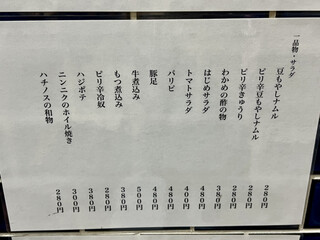 一品物・サラダ
豆もやしナムル 280円
ピリ辛豆もやしナムル 280円
ピリ辛きゅうり 280円
わかめの酢の物 380円
はじめサラダ 480円
トマトサラダ 400円
パリピ 480円
豚足 480円
牛煮込み 500円
もつ煮込み 380円
ピリ辛冷奴 280円
ハジポテ 380円
ニンニクのホイル焼き 300円
ハチノスの和物 280円